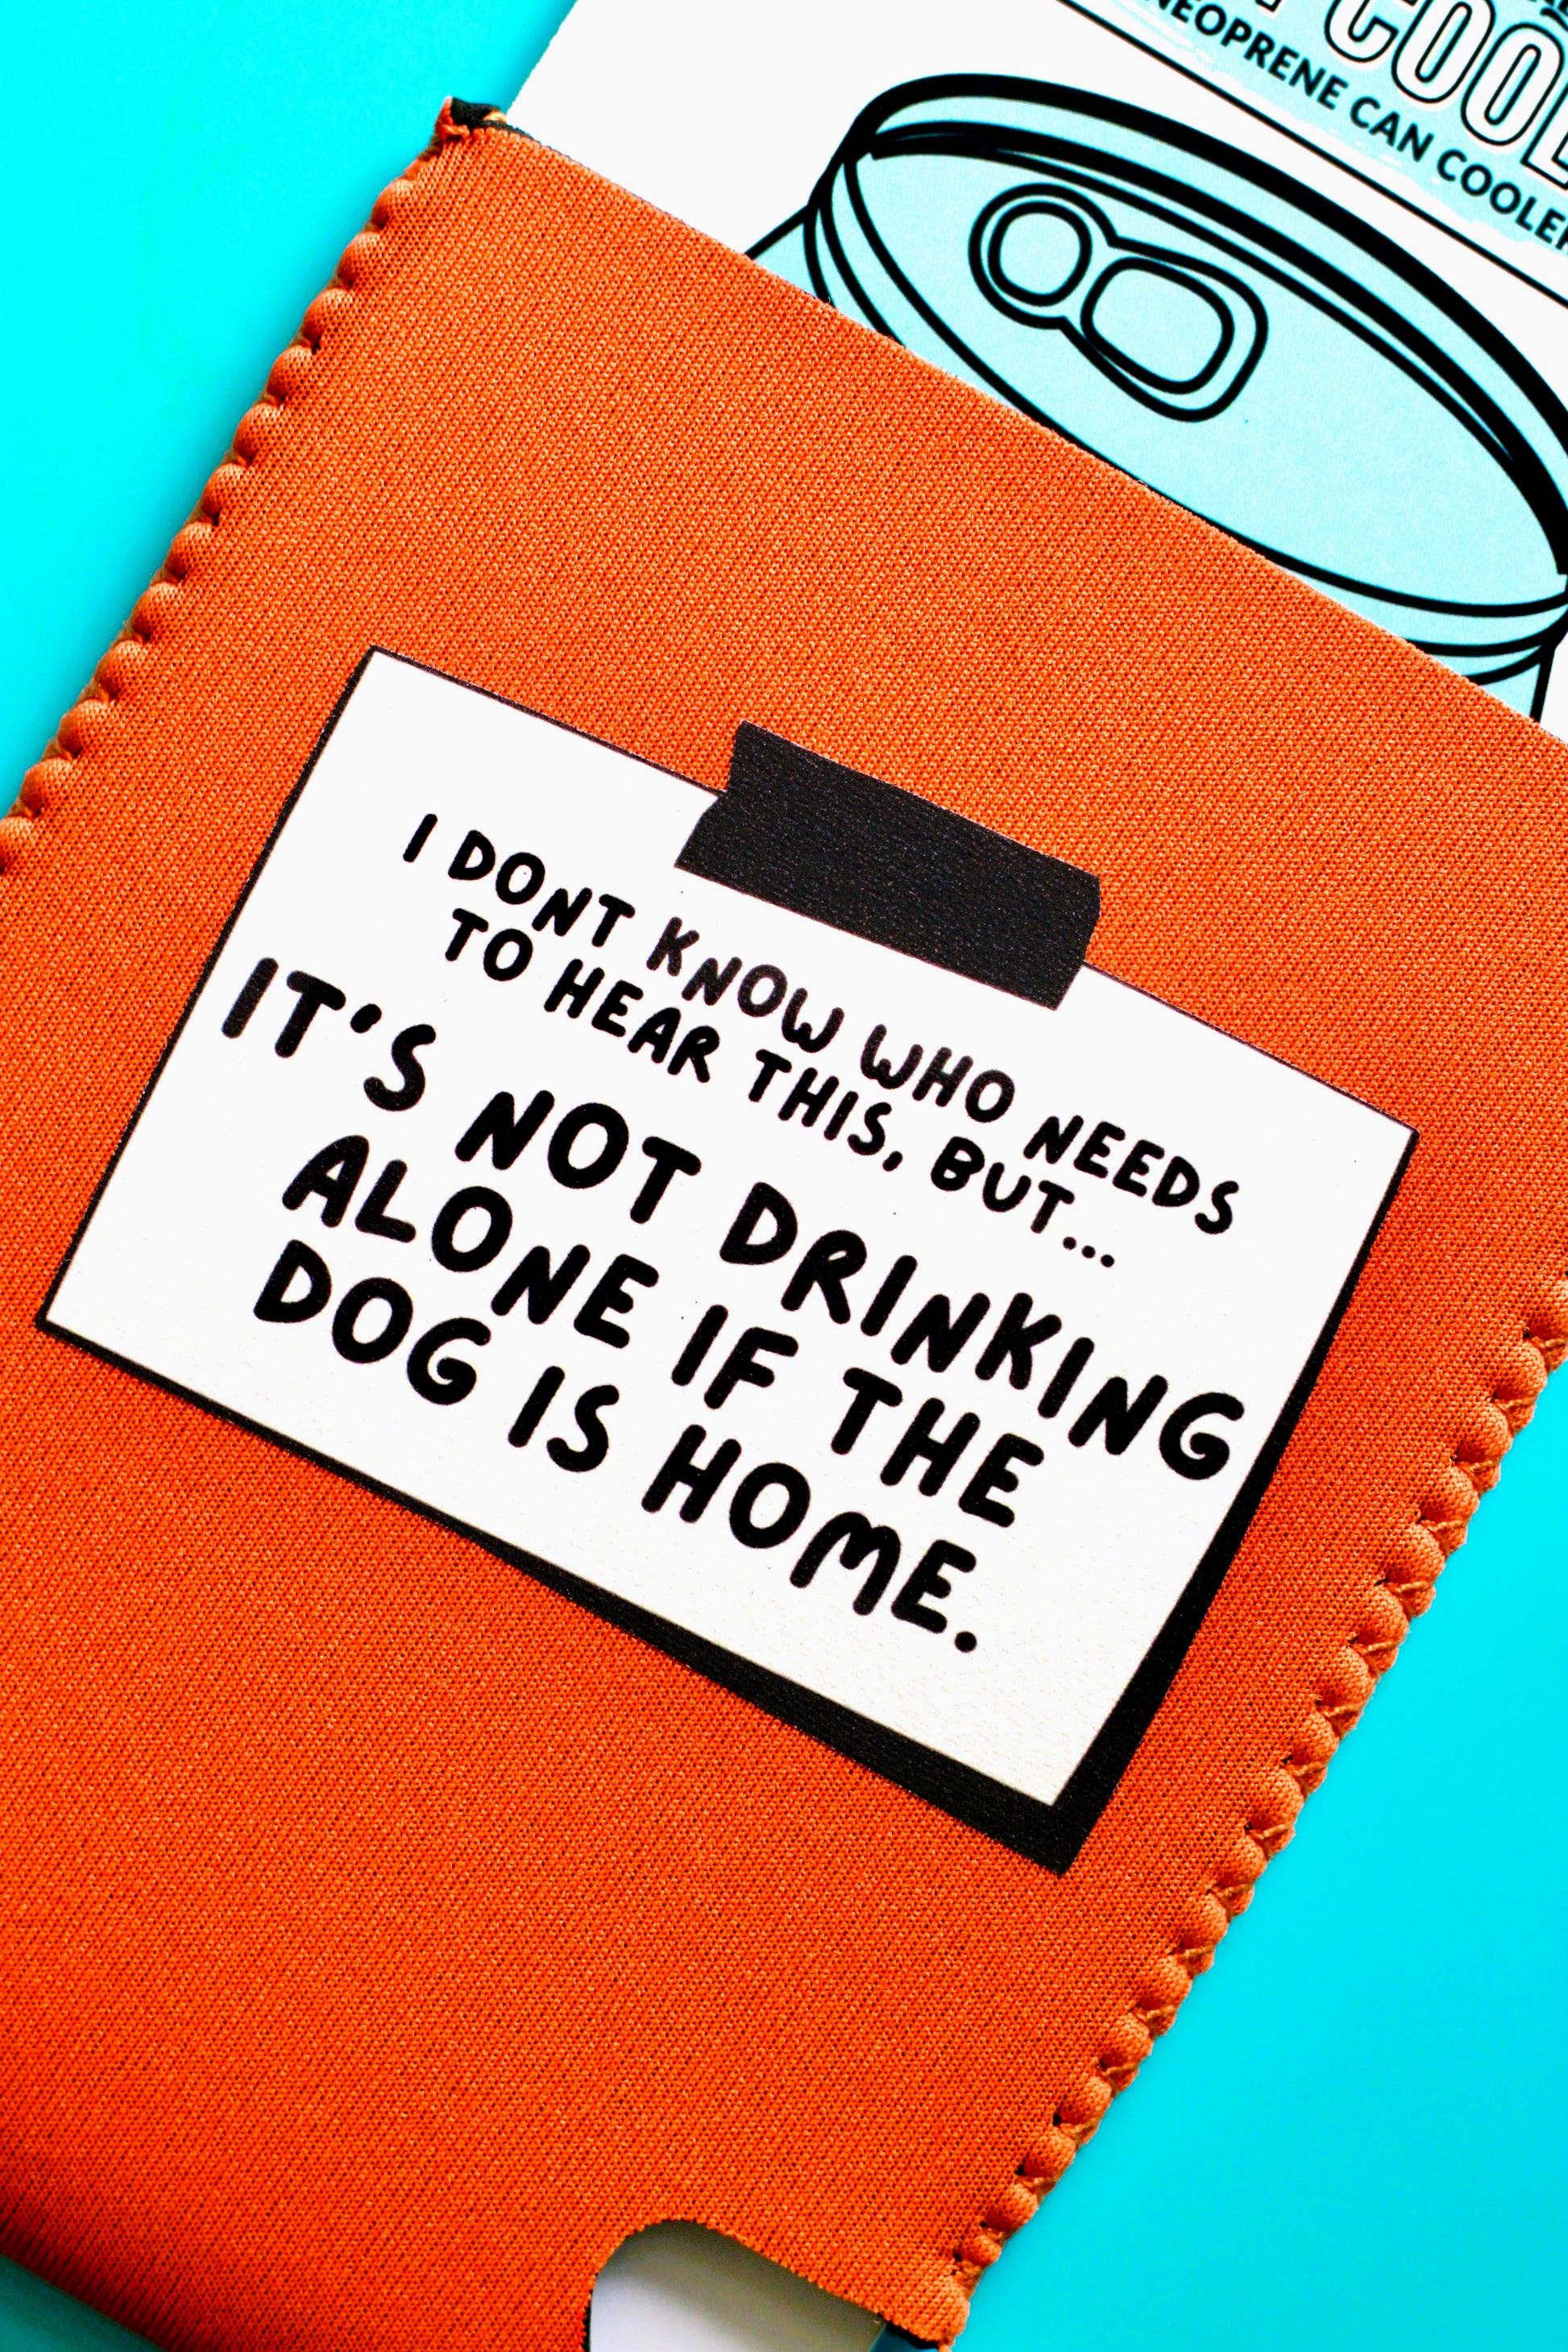 COOL
NEOPRENE CAN COOLER
I DONT KNOW WHO NEEDS
TO HEAR THIS, BUT...
IT'S NOT DRINKING
ALONE IF THE
DOG IS HOME.